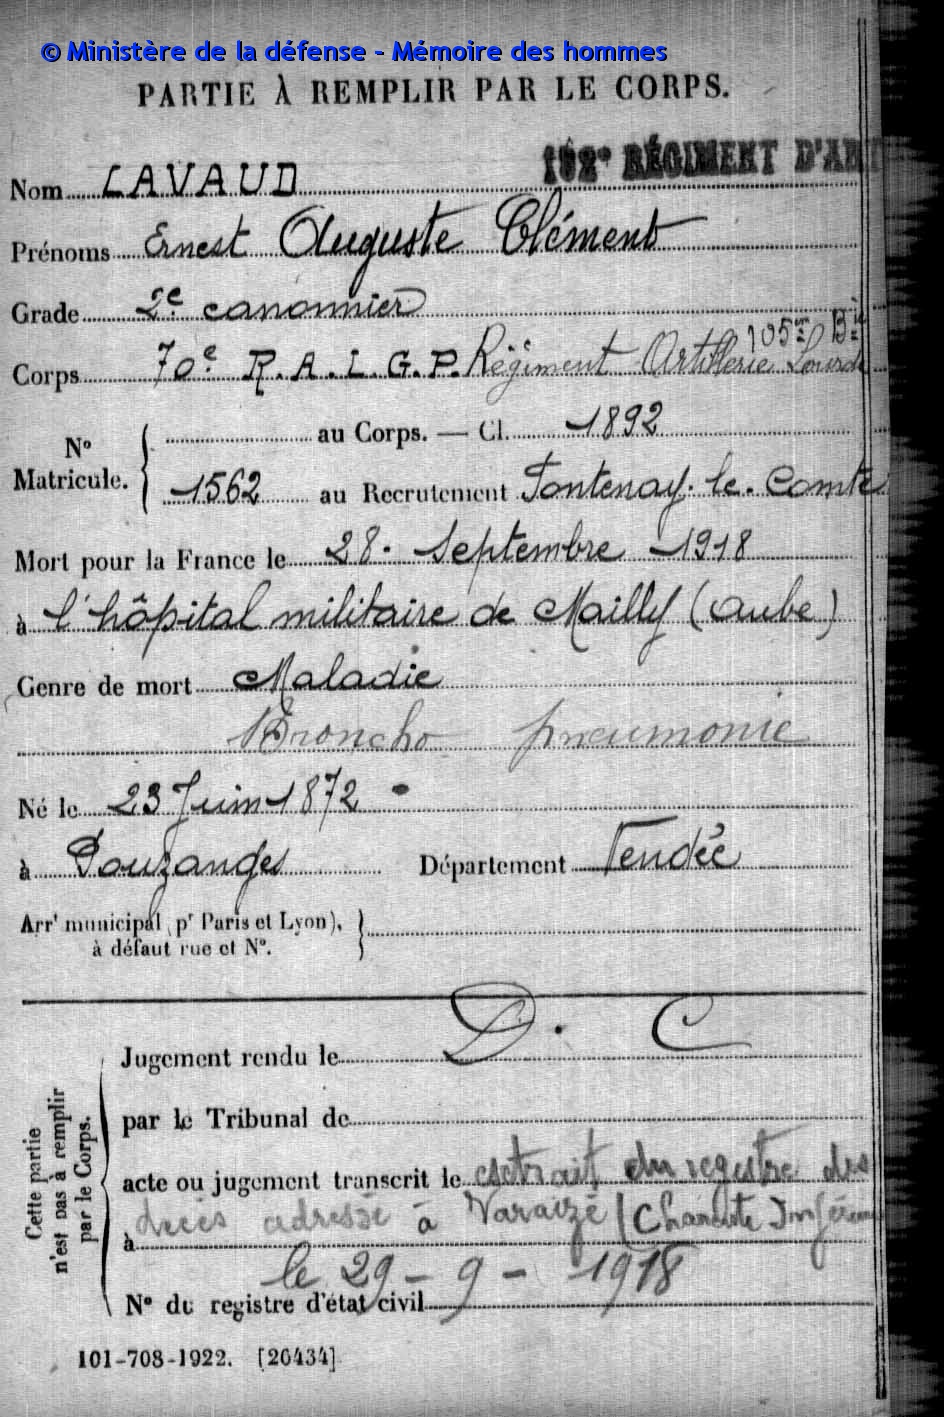 © Ministère de la défense - Mémoire des hommes
PARTIE À REMPLIR PAR LE CORPS.
RÉGIMENT D'ART
Nom LAVAUD
Prénoms Ernest Auguste Clément
Grade 2e canonnier
105em Bie
Corps 70e R.A.L.G.P. Régiment Artillerie Lourde
N° Matricule. { au Corps. — Cl. 1892
1562 au Recrutement Fontenay-le-Comte
Mort pour la France le 28 Septembre 1918
à l'hôpital militaire de Mailly (Aube)
Genre de mort Maladie
Broncho pneumonie
Né le 23 Juin 1872
à Pouzanges Département Vendée
Arrt municipal (pr Paris et Lyon),
à défaut rue et N°.
D. C
Jugement rendu le
par le Tribunal de
acte ou jugement transcrit le extrait du registre des
à décès adressé à Varaize (Charente Inférieu
le 29-9-1918
N° du registre d'état civil
Cette partie
n'est pas à remplir
par le Corps.
101-708-1922. [26434]